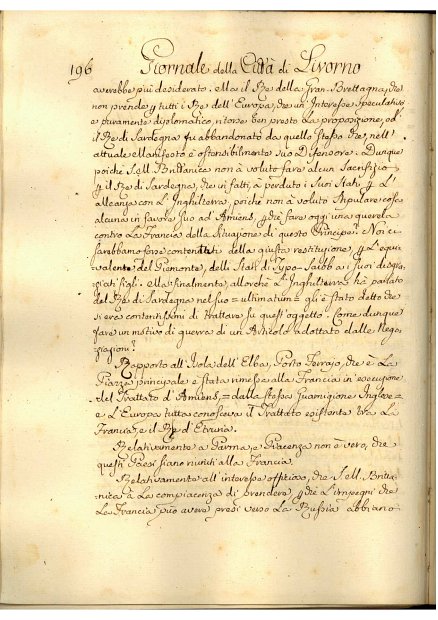 196 Giornale della Città di Livorno
averebbe più desiderato. Ma il Re della Gran-Brettagna, che
non prende p tutti i Re dell'Europa, che un Interesse speculativo
e puramente diplomatico, ritorse ben presto La proposizione, ed
il Re di Sardegna fu abbandonato da quello stesso che, nell'
attuale Manifesto è ostensibilmente suo Difensore. Dunque
poiché S. M. Britanica non à voluto fare alcun Sacrifizio
p il Re di Sardegna, che in fatti, à perduto i Suoi Stati p L'
alleanza con L'Inghilterra, poiché non à voluto stipulare cosa
alcuna in favore Suo ad Amiens, p che fare oggi una querela
contro La Francia della Situazione di questo Principe? Noi ci
sarebbamo forse contentati della giusta restituzione, p L'equi
valente del Piemonte, delli Stati di Typo-Saibb a i suoi disgra-
ziati figli. Ma finalmente allorché L'Inghilterra hà parlato
del Re di Sardegna nel suo = ultimatum = gli è stato detto che
si era contentissimi di trattare su quest'oggetto. Come dunque
fare un motivo di guerra di un Articolo adottato dalle Nego-
ziazioni?
Rapporto all'Isola dell'Elba, Porto Ferrajo, che è La
Piazza principale è stata rimessa alla Francia in esecuzione
del Trattato d'Amiens, = dalla stessa Guarnigione Inglese =
e L'Europa tutta conosceva il Trattato esistente tra La
Francia, e il Re d'Etruria.
Relativamente a Parma, e Piacenza non è vero, che
questi Paesi siano riuniti alla Francia.
Relativamente all'interesse offizioso, che S. M. Britan-
nica à La compiacenza di prendere, p che L'impegni che
La Francia può avere presi verso La Russia abbiano